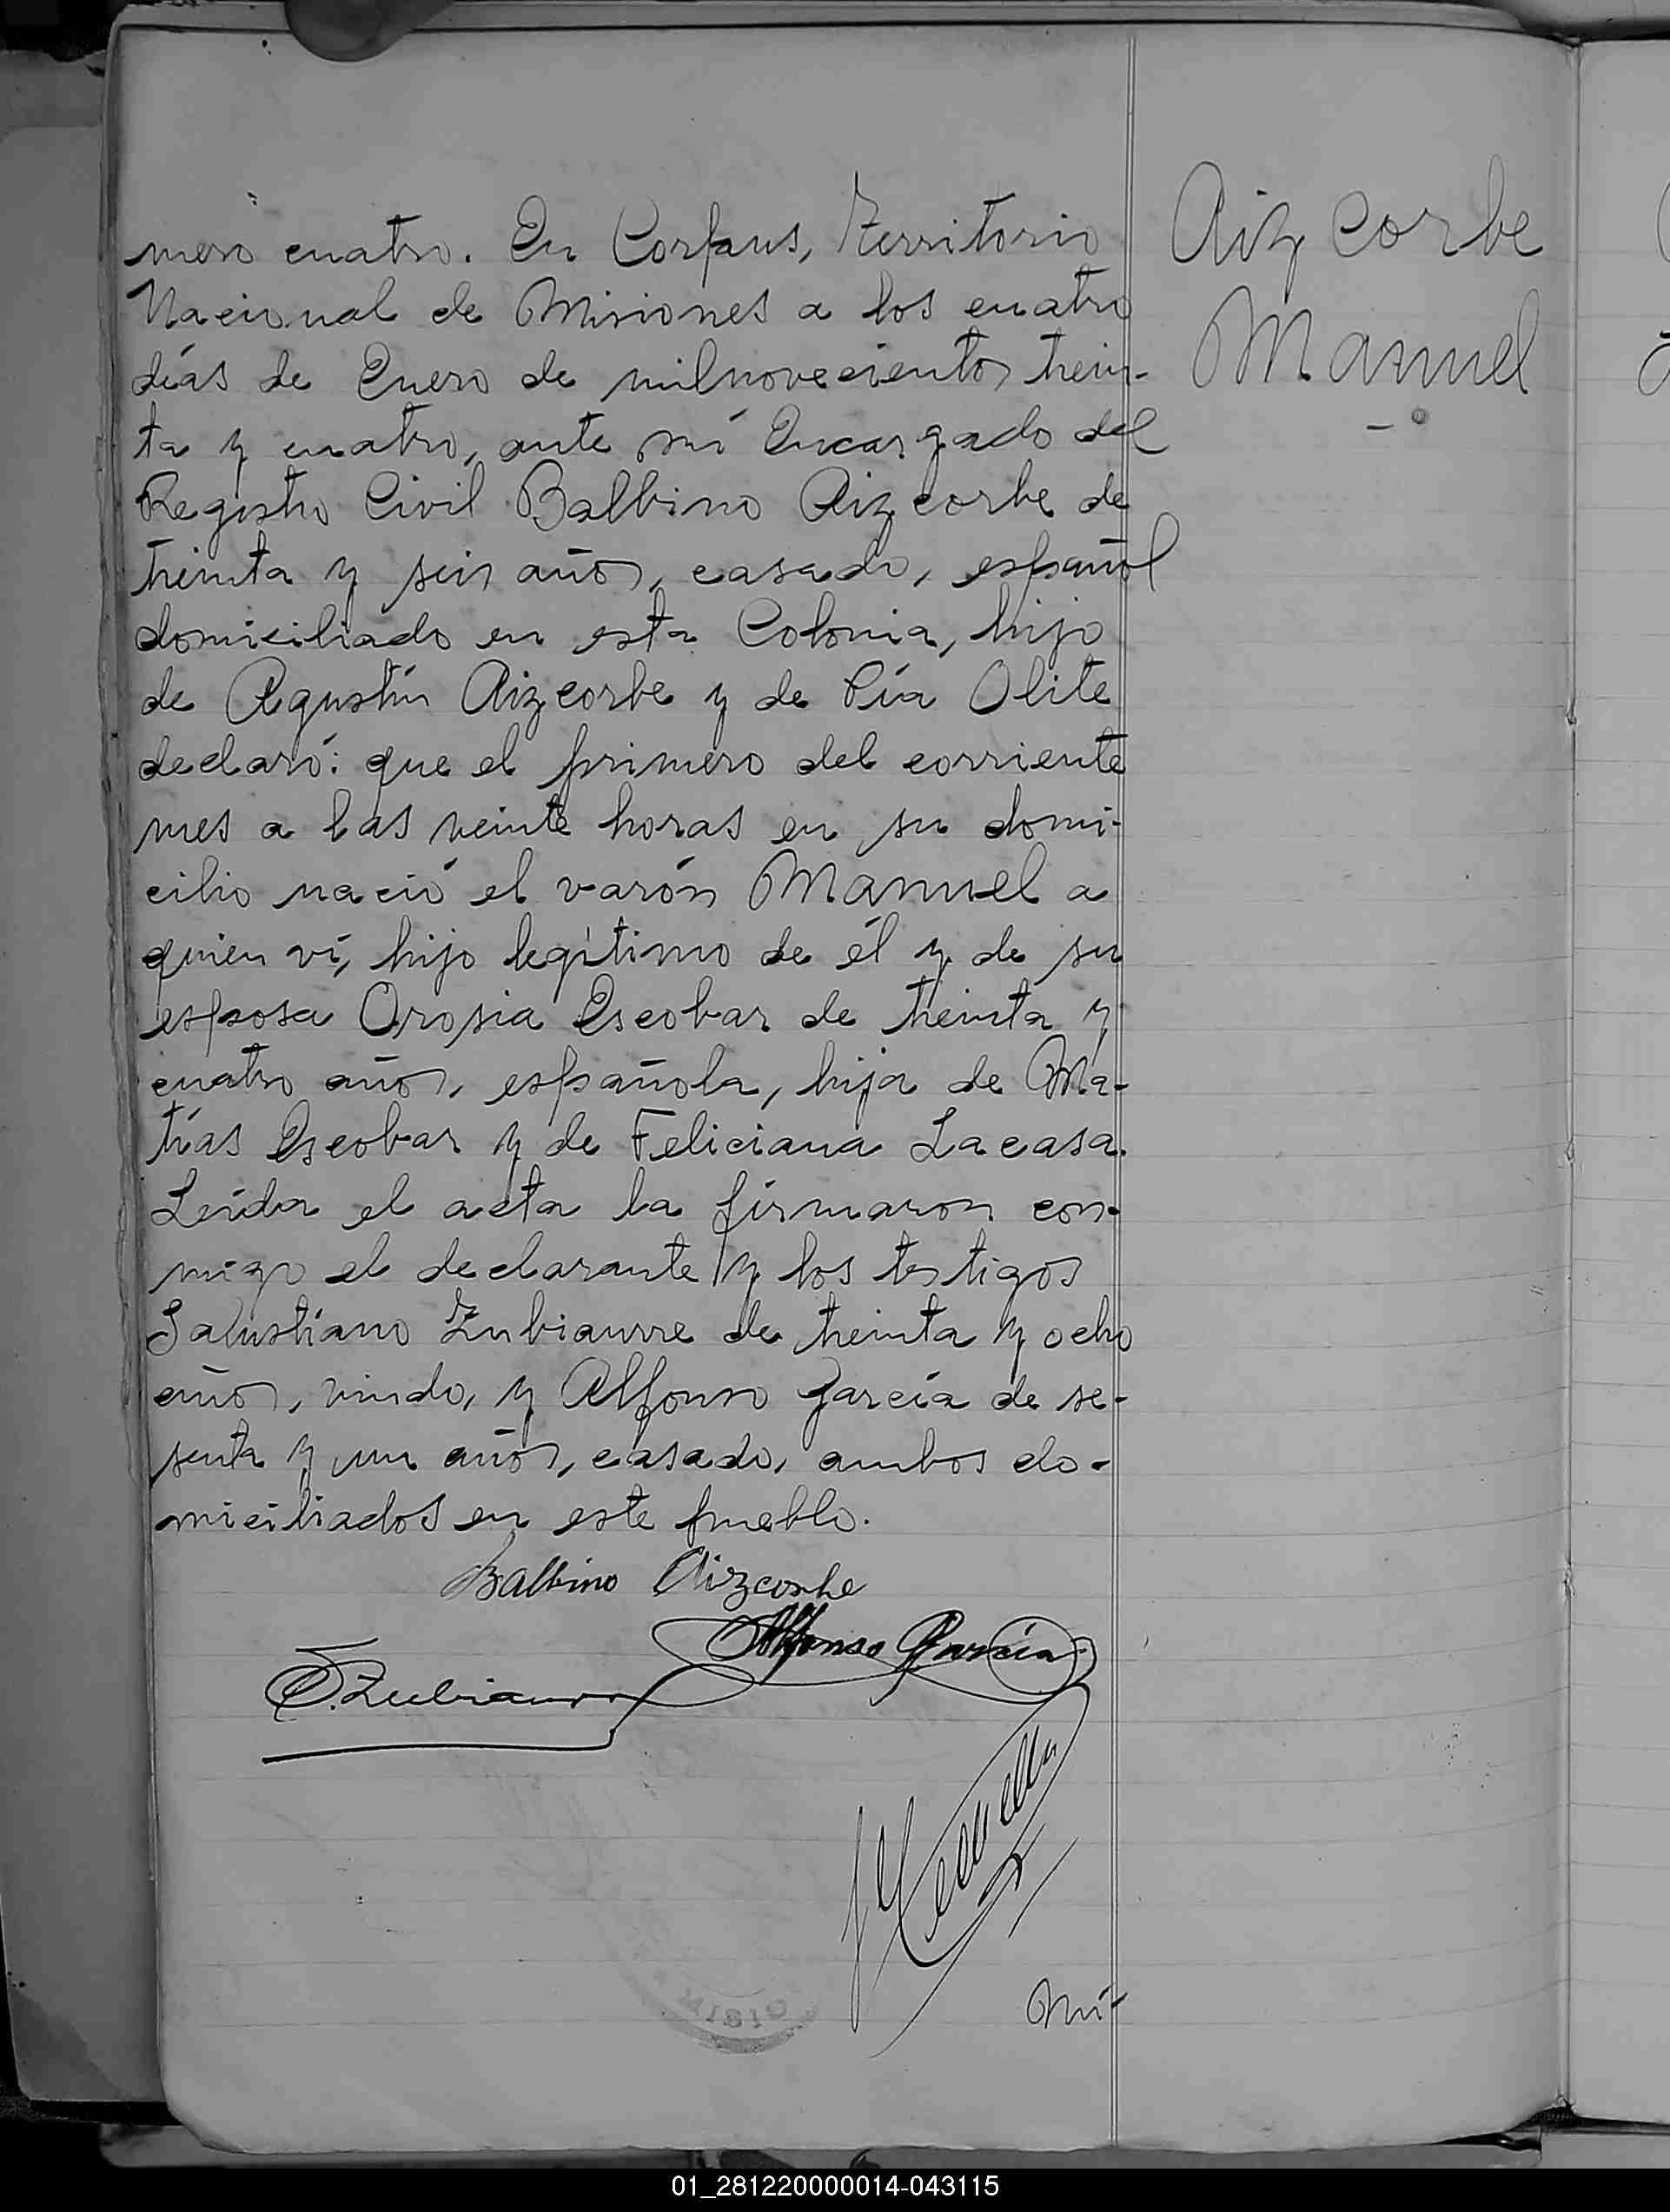 mero cuatro. En Corpus, Territorio
Nacional de Misiones a los cuatro
días de Enero de milnovecientos trein-
ta y cuatro, ante mí Encargado del
Registro Civil Balbino Aizcorbe de
treinta y seis años, casado, español
domiciliado en esta Colonia, hijo
de Agustín Aizcorbe y de Pía Olite
declaró: que el primero del corriente
mes a las veinte horas en su domi-
cilio nació el varón Manuel a
quien ví, hijo legítimo de él y de su
esposa Orosia Escobar de treinta y
cuatro años, española, hija de Ma-
tías Escobar y de Feliciana Lacasa.
Leída el acta la firmaron con-
migo el declarante y los testigos
Salustiano Zubiaurre de treinta y ocho
años, viudo, y Alfonso García de se-
senta y un años, casado, ambos do-
miciliados en este pueblo.
Balbino Aizcorbe
Alfonso García
S. Zubiaurre
Nú-
Aizcorbe
Manuel
01_281220000014-043115